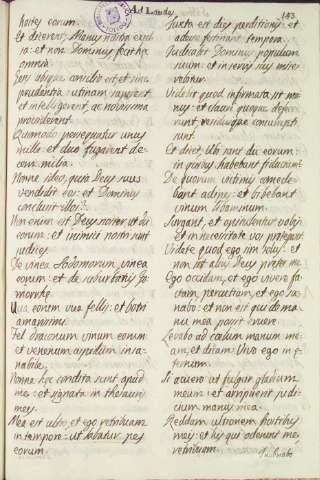 Ad Laudes
183
hostes eorum.
Et dicerent, Manus nostra excel
sa: et non Dominus, fecit hæc
omnia.
Gens absque consilio est et sine
prudentia: utinam saperent
et intelligerent, ac novissima
providerent.
Quomodo persequatur unus
mille et duo fugarent de
cem millia.
Nonne ideo, quia Deus suus
vendidit eos: et Dominus
conclusit illos?
Non enim est Deus noster ut dii
eorum: et inimici nostri sunt
judices.
De vinea Sodomorum vinea
eorum: et de suburbanis Go
morrhæ.
Uva eorum uva fellis: et botri
amarissimi.
Fel draconum vinum eorum:
et venenum aspidum insa-
nabile.
Nonne hæc condita sunt apud
me: et signata in thesauris
meis.
Mea est ultio, et ego retribuam
in tempore: ut labatur pes
eorum.
Juxta est dies perditionis: et
adesse festinant tempora.
Judicabit Dominus populum
suum: et in servis suis mise-
rebitur.
Videbit quod infirmata sit ma-
nus: et clausi quoque defece-
runt, residuique consumpti
sunt.
Et dicet: Ubi sunt dii eorum:
in quibus habebant fiduciam?
De quorum victimis comede-
bant adipes: et bibebant
vinum libaminum.
Surgant, et opitulentur vobis:
Et in necessitate vos protegant.
Videte quod ego sim solus: et
non sit alius Deus præter me.
Ego occidam, et ego vivere fa-
ciam, percutiam, et ego sa-
nabo: et non est qui de ma
nu mea possit eruere.
Levabo ad cœlum manum me-
am, et dicam: Vivo ego in æ-
ternum.
Si acuero ut fulgur gladium
meum: et arripuerit judi-
cium manus mea.
Reddam ultionem hostibus
meis: et his qui oderunt me,
retribuam.